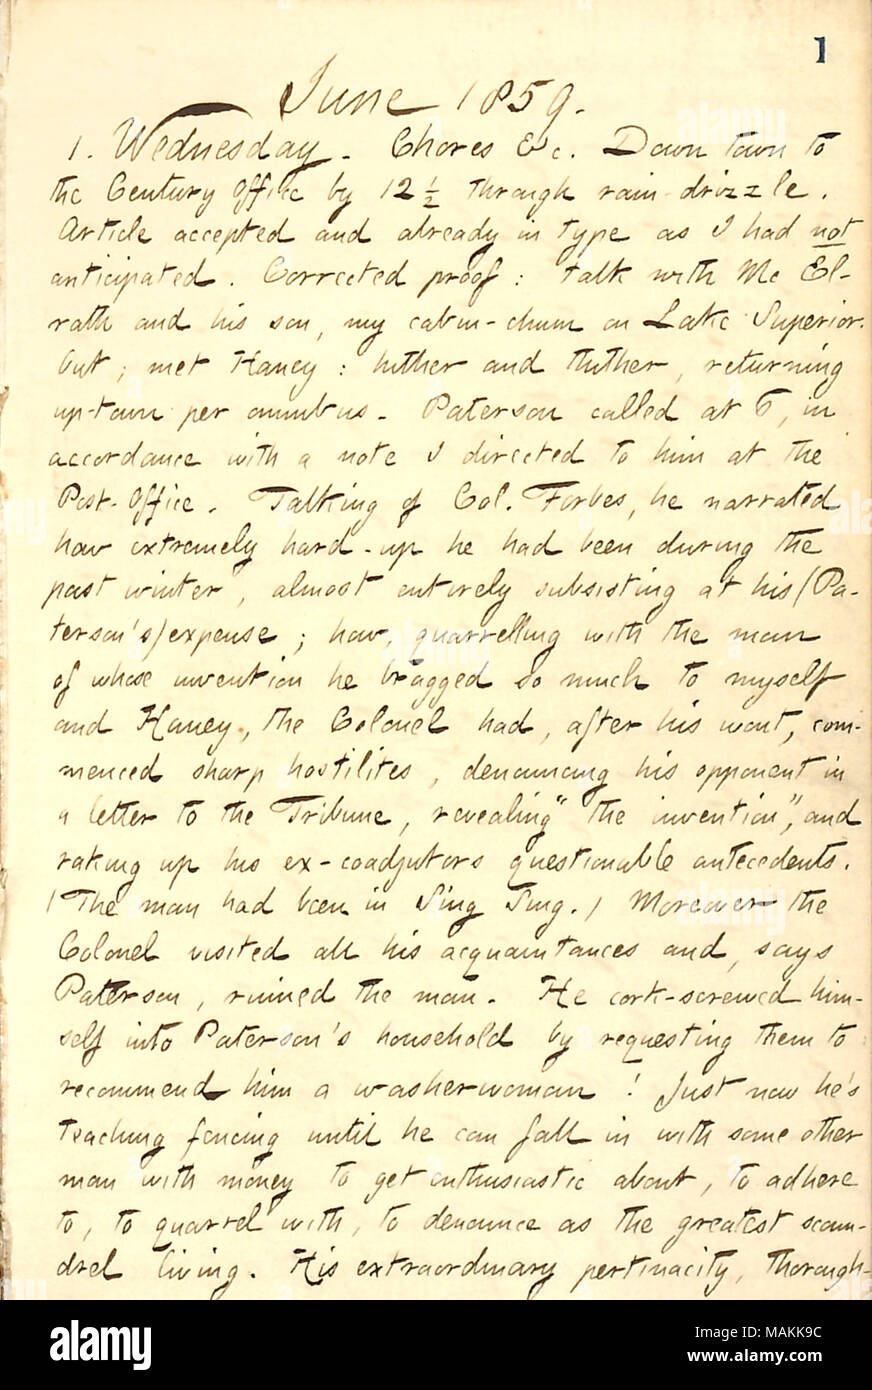 1
June 1859.
1. Wednesday. Chores &c. Down town to
the Century Office by 12 1/2 through rain-drizzle.
Article accepted and already in type as I had not
anticipated. Corrected proof: talk with Mc El-
rath and his son, my cabin-chum on Lake Superior.
Out; met Haney: hither and thither, returning
up-town per omnibus. Paterson called at 6, in
accordance with a note I directed to him at the
Post-Office. Talking of Col. Forbes, he narrated
how extremely hard-up he had been during the
past winter, almost entirely subsisting at his (Pa-
terson's) expense; how, quarrelling with the man
of whose invention he bragged so much to myself
and Haney, the Colonel had, after his wont, com-
menced sharp hostilites, denouncing his opponent in
a letter to the Tribune, revealing "the invention", and
raking up his ex-coadjutors questionable antecedents.
(The man had been in Sing Sing.) Moreover the
Colonel visited all his acquaintances and, says
Paterson, ruined the man. He cork-screwed him-
self into Paterson's household by requesting them to
recommend him a washerwoman! Just now he's
teaching fencing until he can fall in with some other
man with money to get enthusiastic about, to adhere
to, to quarrel with, to denounce as the greatest scoun-
drel living. His extraordinary pertinacity, thorough-
alamy
Image ID: MAKK9C
www.alamy.com